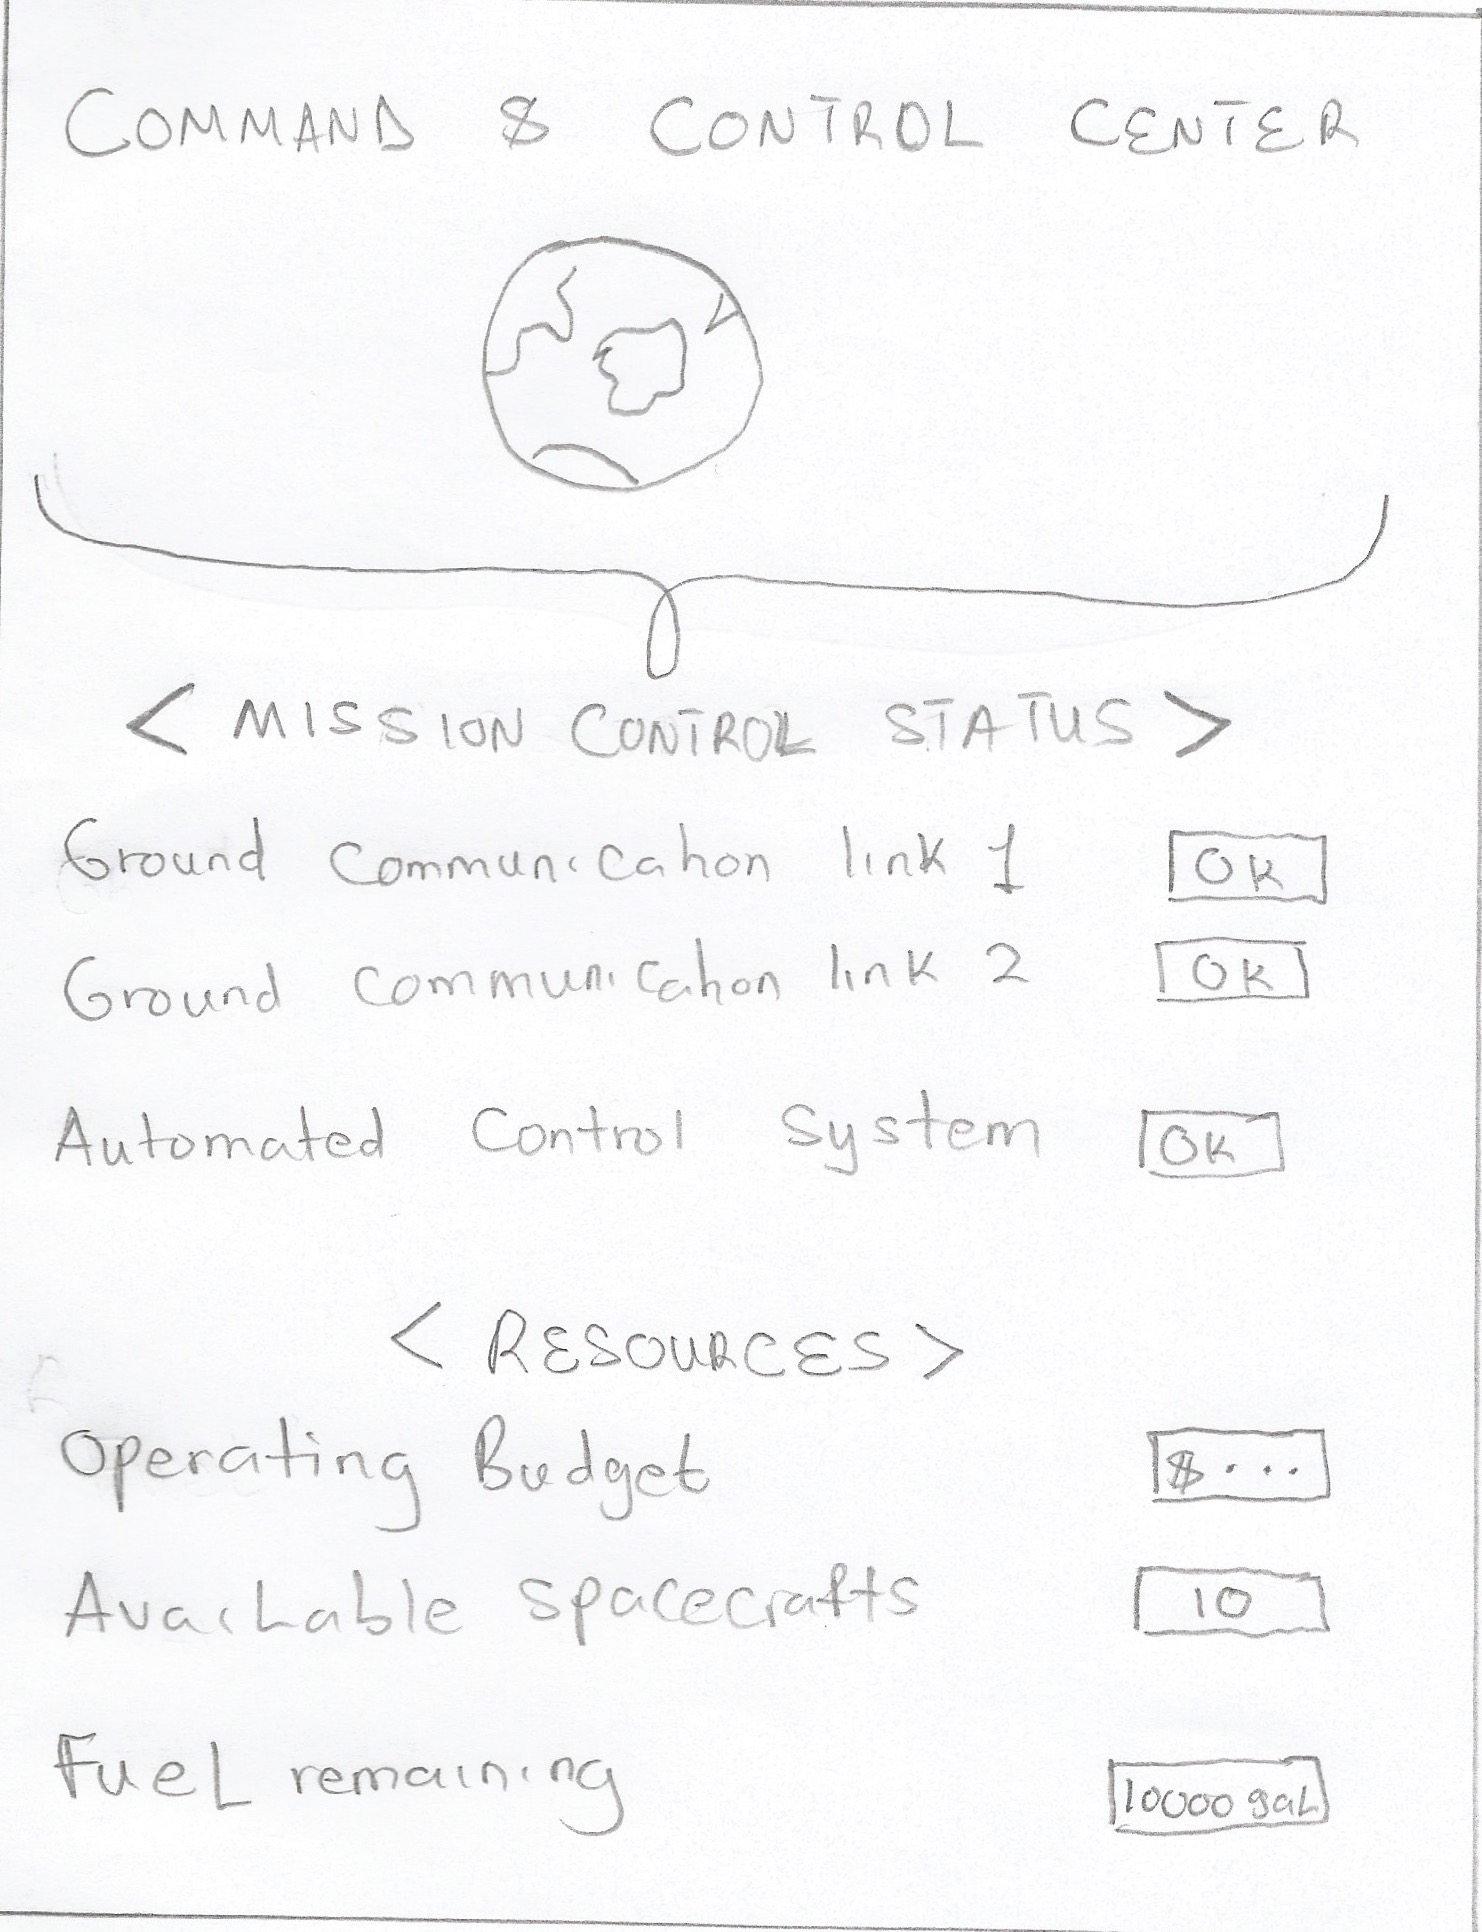 COMMAND & CONTROL CENTER
< MISSION CONTROL STATUS >
Ground communication link 1 OK
Ground communication link 2 OK
Automated Control System OK
< RESOURCES >
Operating Budget $...
Available spacecrafts 10
Fuel remaining 10000 gal